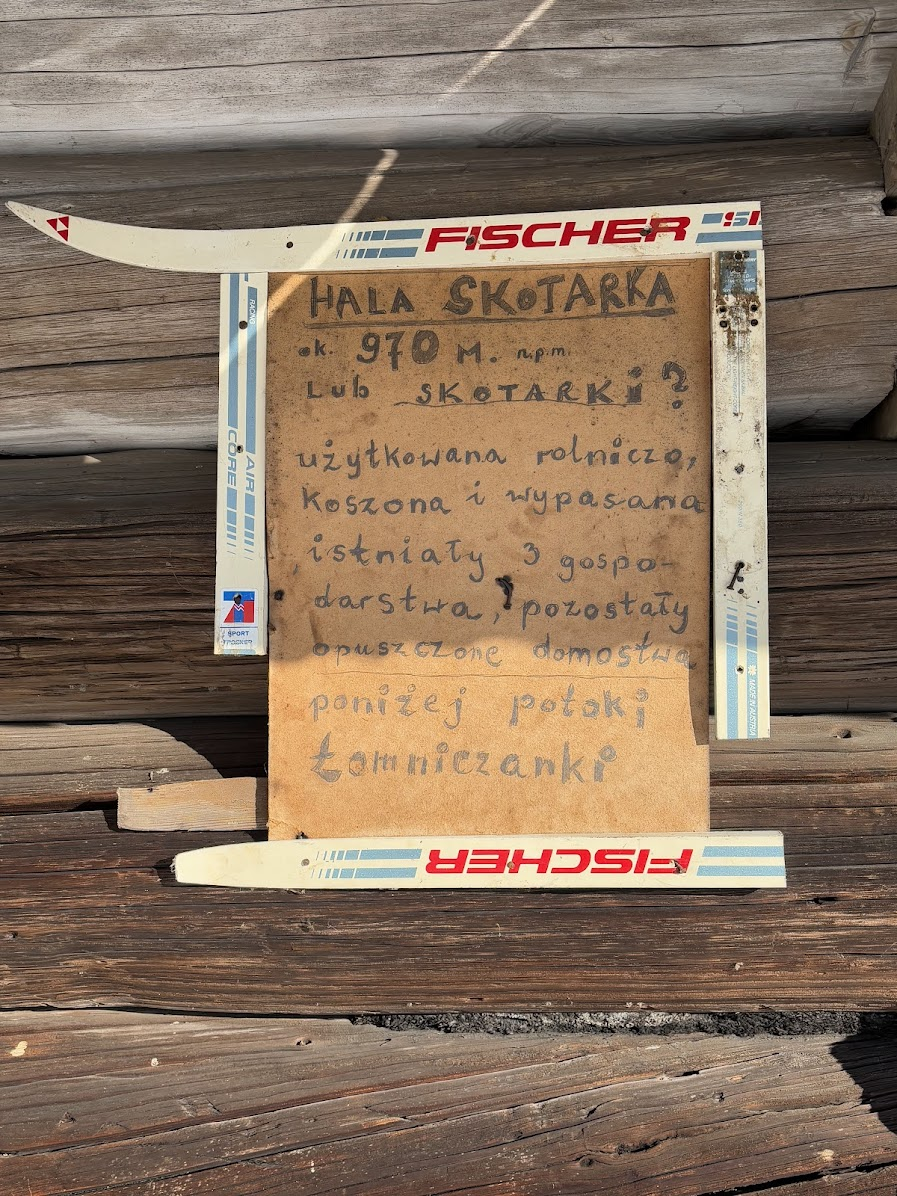 FISCHER SI
HALA SKOTARKA
ok. 970 M. n.p.m.
Lub SKOTARKi?
użytkowana rolniczo,
koszona i wypasana
istniały 3 gospo-
darstwa, pozostały
opuszczone domostwa
poniżej potoki
Łomniczanki
RACING
AIR
CORE
SPORT
MADE IN AUSTRIA
FISCHER